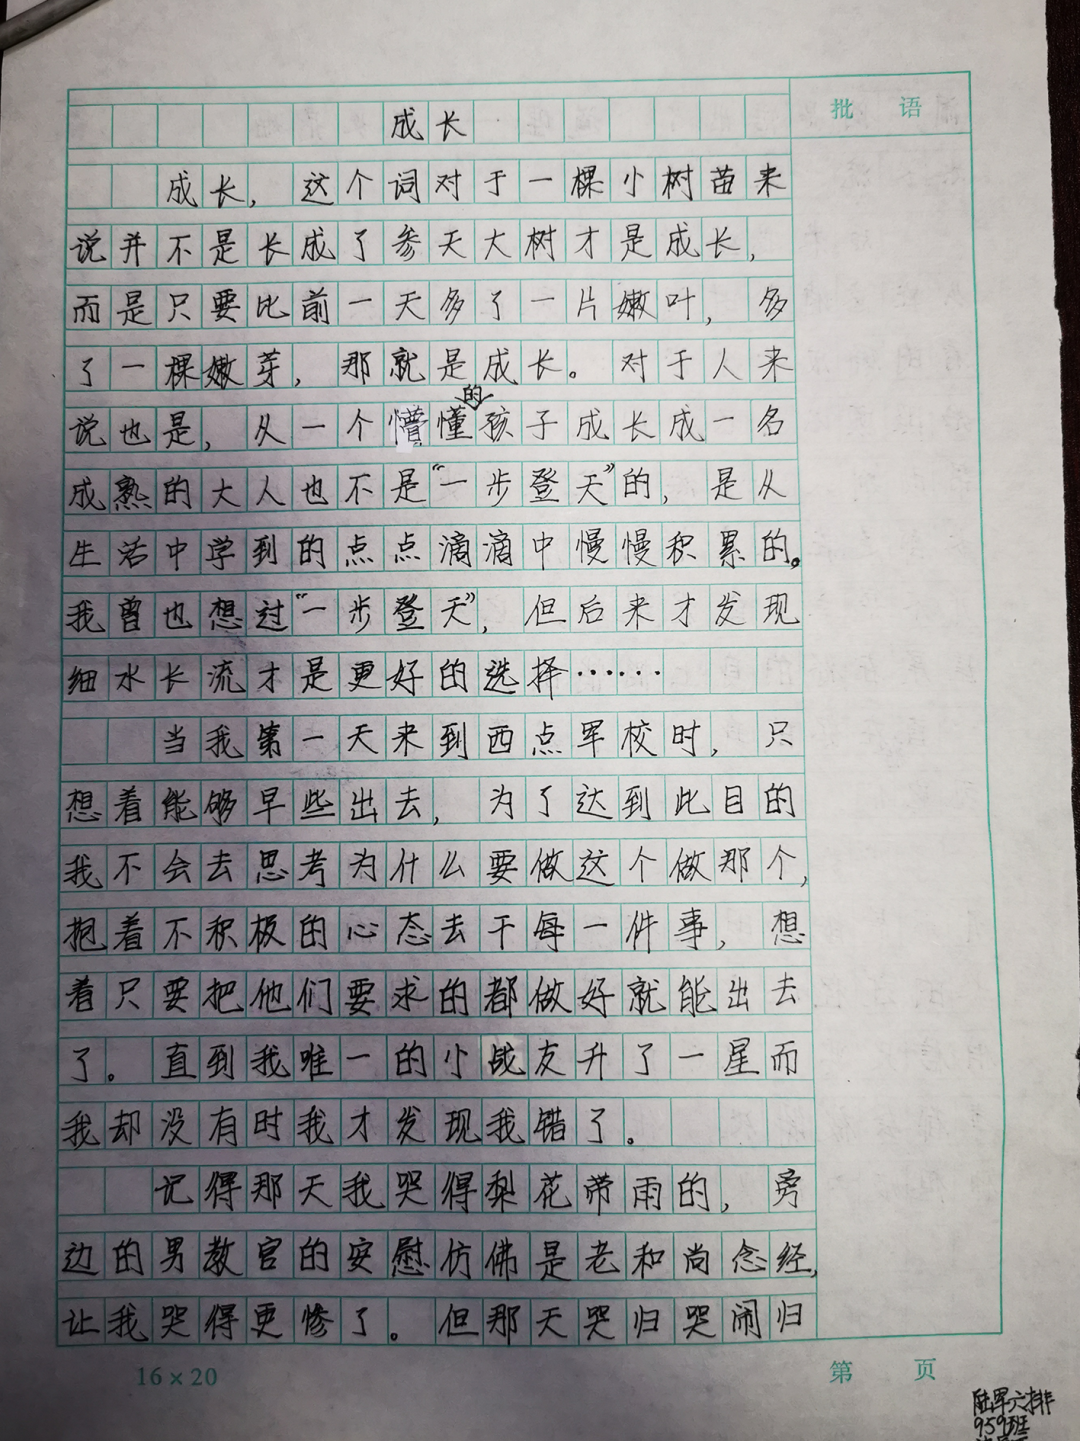 批 语
成长
成长，这个词对于一棵小树苗来
说并不是长成了参天大树才是成长，
而是只要比前一天多了一片嫩叶，多
了一棵嫩芽，那就是成长。对于人来
说也是，从一个懵懂的孩子成长成一名
成熟的大人也不是“一步登天”的，是从
生活中学到的点点滴滴中慢慢积累的。
我曾也想过“一步登天”，但后来才发现
细水长流才是更好的选择……
当我第一天来到西点军校时，只
想着能够早些出去，为了达到此目的
我不会去思考为什么要做这个做那个，
抱着不积极的心态去干每一件事，想
着只要把他们要求的都做好就能出去
了。直到我唯一的小战友升了一星而
我却没有时我才发现我错了。
记得那天我哭得梨花带雨的，旁
边的男教官的安慰仿佛是老和尚念经，
让我哭得更惨了。但那天哭归哭闹归
16×20
第 页
陆军六排
959班